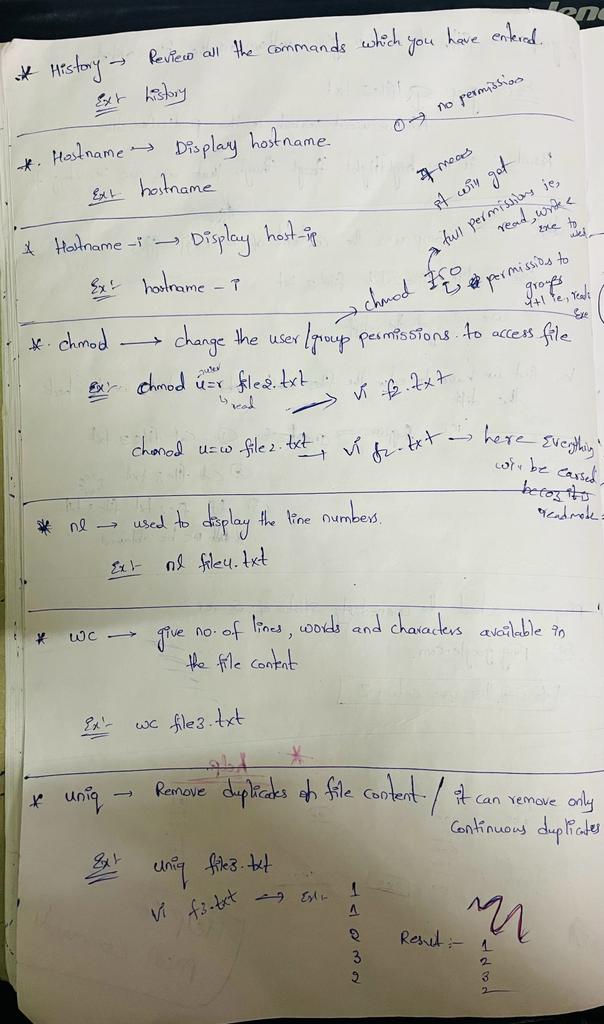 * History → Review all the commands which you have entered.
Ex:- history
* Hostname → Display hostname
Ex:- hostname
→ no permission
* Hostname -i → Display host-ip
Ex:- hostname -i
it means
it will get
full permissions ie,
read, write &
exe to user
→ chmod 750
permissios to
groups
4+1 ie, read
exe
* chmod → change the user/group permissions to access file
Ex:- chmod u=r file2.txt → vi f2.txt
user
↳ read
chmod u=w file2.txt → vi f2.txt → here Everything
will be
becoz it is
readmode
* nl → used to display the line numbers.
Ex:- nl file4.txt
* wc → give no. of lines, words and characters available in
the file content
Ex:- wc file3.txt
* uniq → Remove duplicates of file content / it can remove only
Continuous duplicates
Ex:- uniq file3.txt
vi f3.txt → Ex:- 1
1
2
3
2
Result :- 1
2
3
2
lenovo